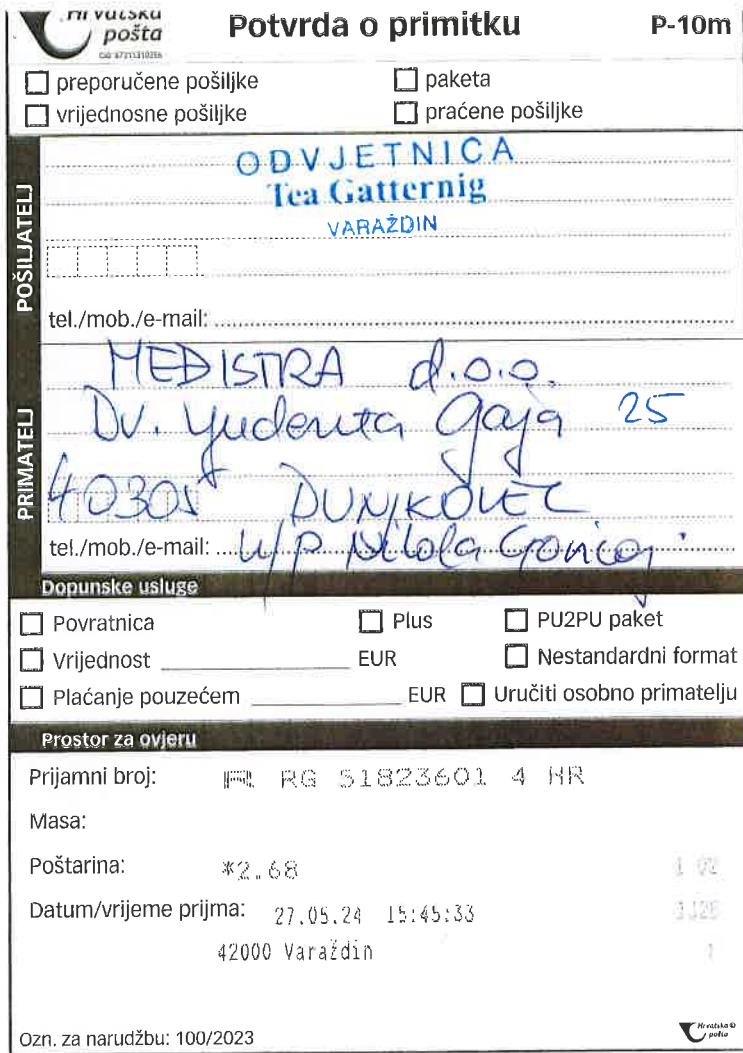 Hrvatska
pošta
Potvrda o primitku
P-10m
preporučene pošiljke
paketa
vrijednosne pošiljke
praćene pošiljke
POŠILJATELJ
ODVJETNICA
Tea Gatternig
VARAŽDIN
tel./mob./e-mail:
PRIMATELJ
MEDISTRA d.o.o.
Dv. Gaja 25
40305 DUNJKOVEC
tel./mob./e-mail: u/p Nikola
Dopunske usluge
Povratnica
Plus
PU2PU paket
Vrijednost EUR
Nestandardni format
Plaćanje pouzećem EUR
Uručiti osobno primatelju
Prostor za ovjeru
Prijamni broj: R RG 51823601 4 HR
Masa:
Poštarina: *2.68
Datum/vrijeme prijma: 27.05.24 15:45:33
42000 Varaždin
Ozn. za narudžbu: 100/2023
Hrvatska
pošta